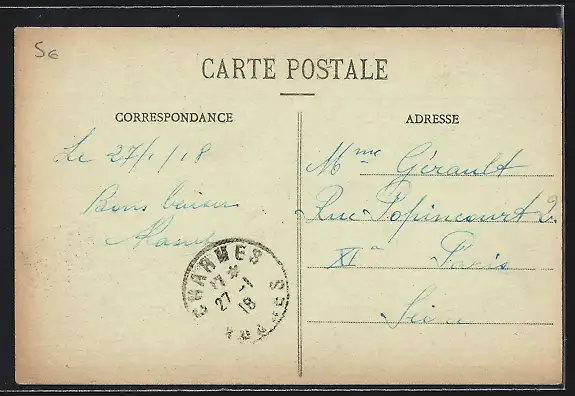 5€
CARTE POSTALE
CORRESPONDANCE
Le 27/1/18
Bons baisers
CHARMES
17 *
27 -1
18
VOSGES
ADRESSE
Mme Gérault
Rue Popincourt 2
XIe Paris
Seine